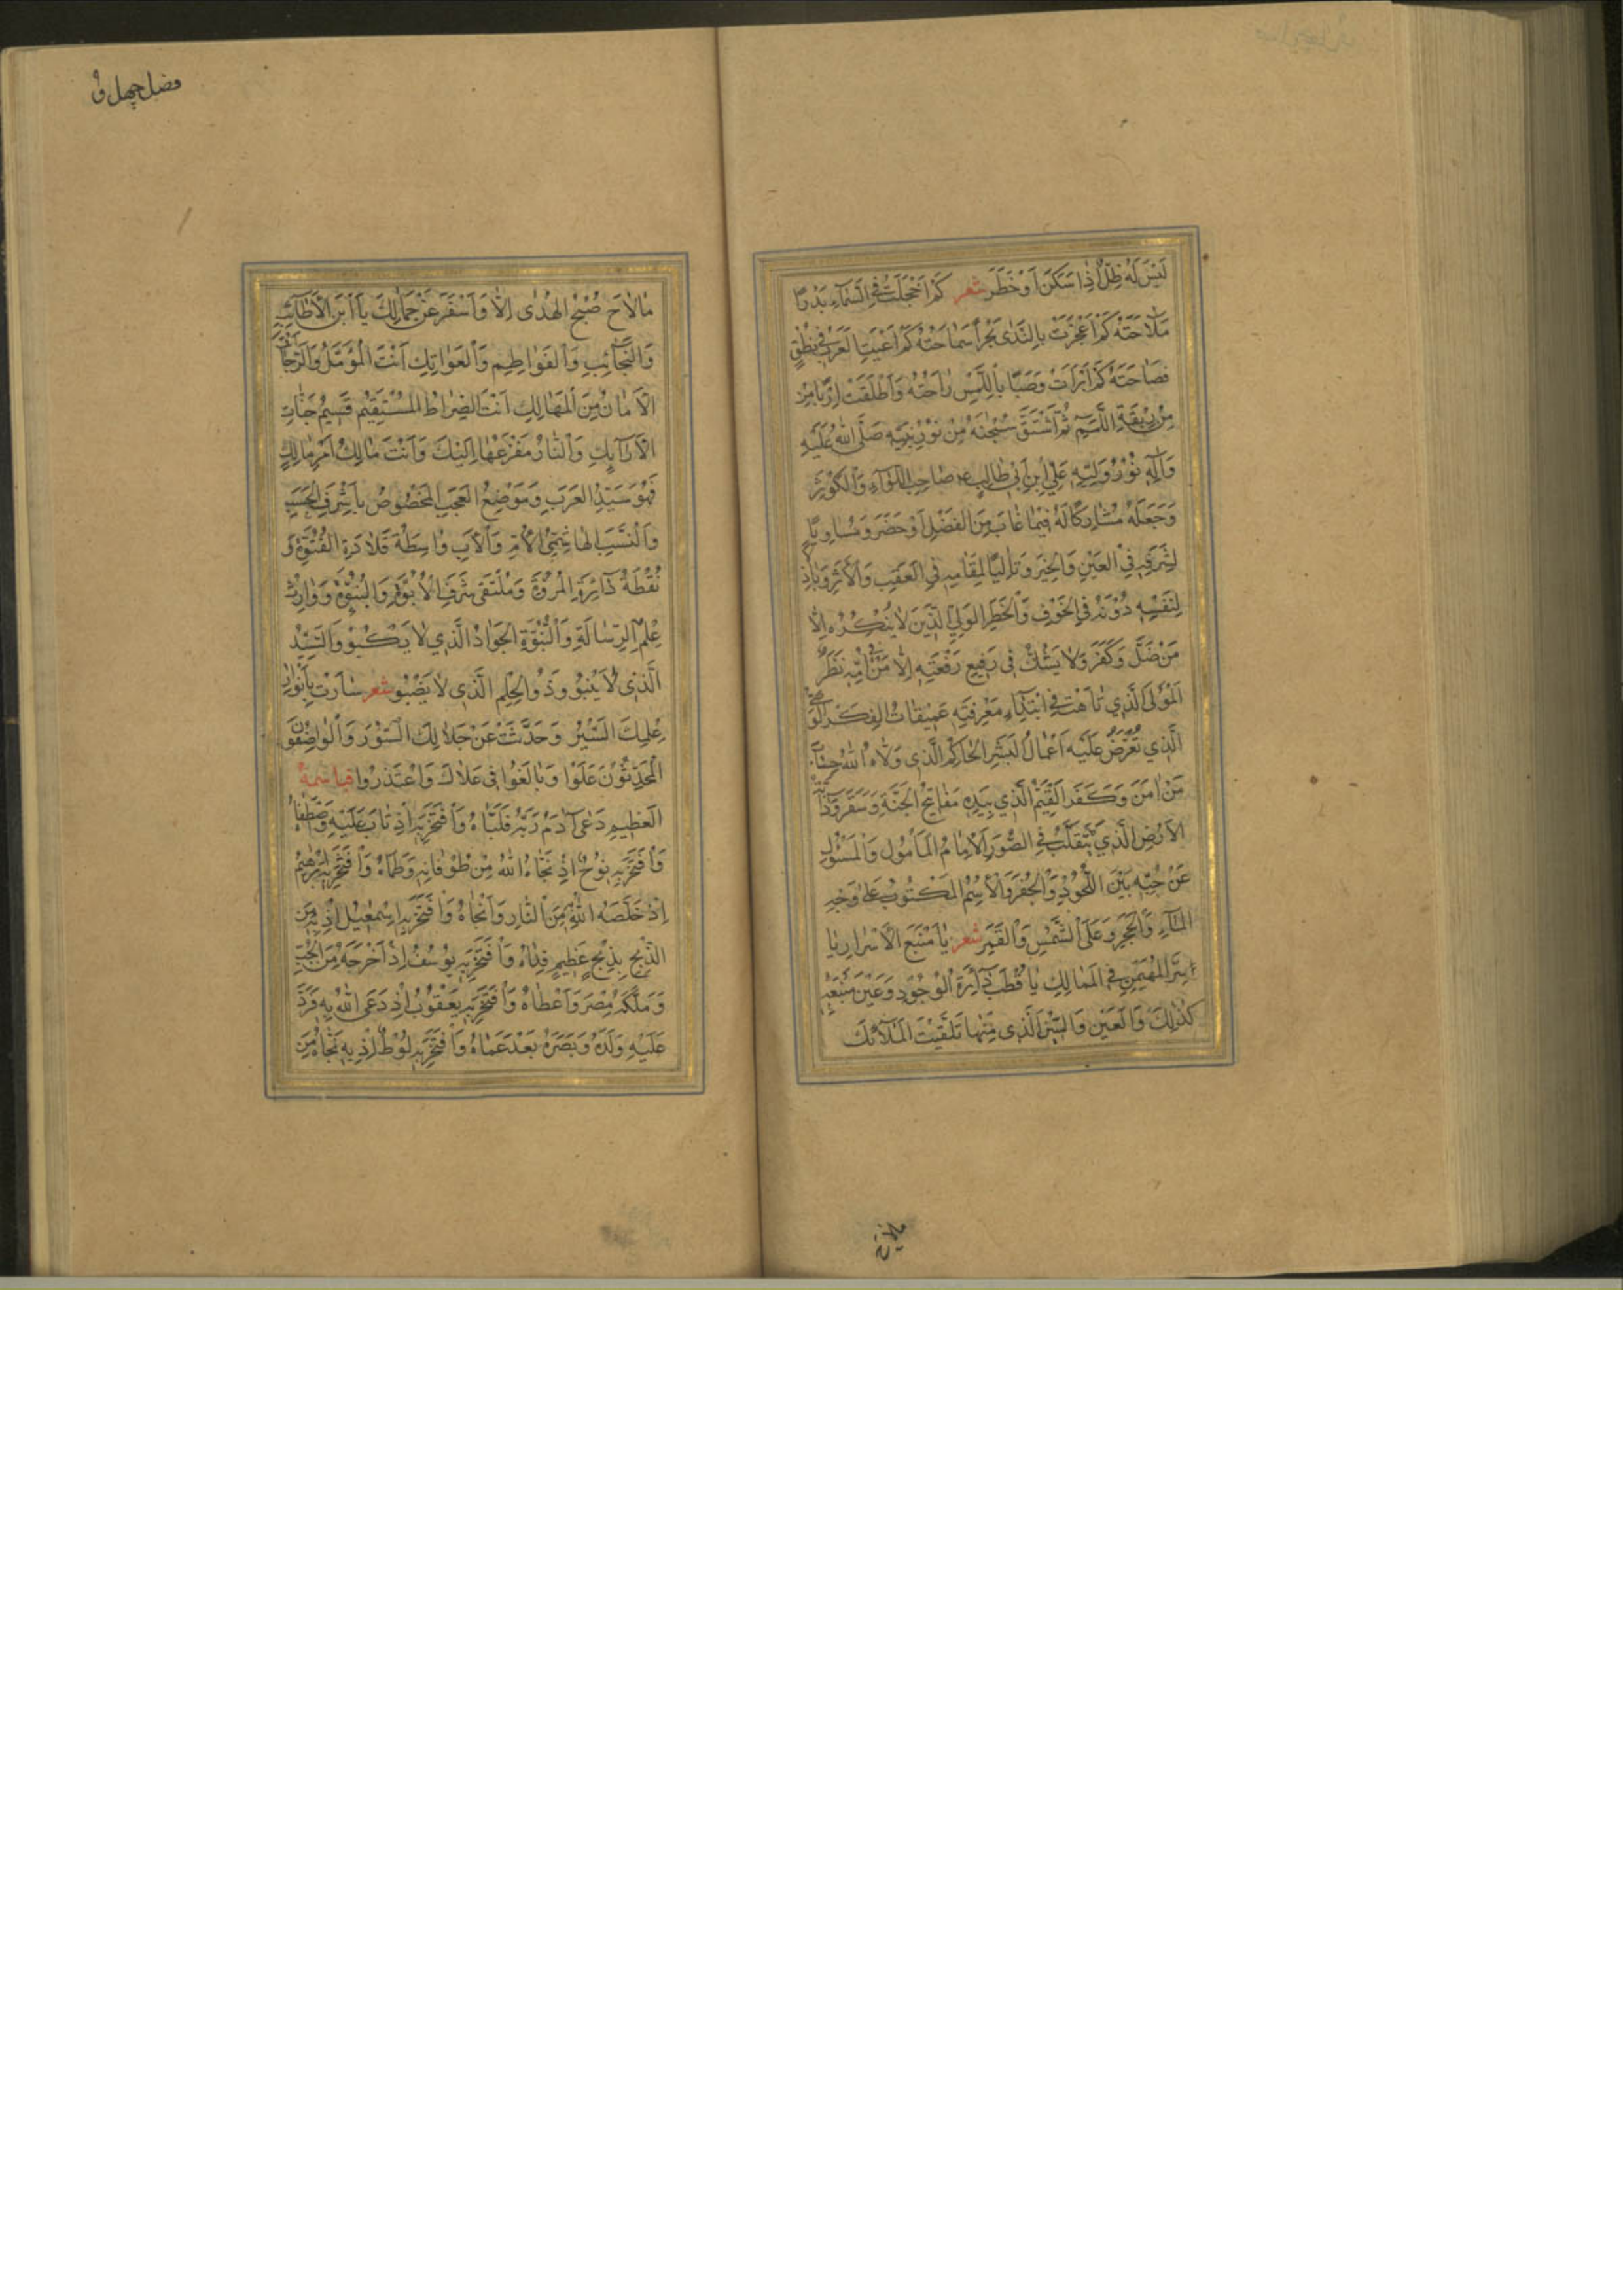 لَيْسَ لَهُ ظِلٌّ اِذَا سَكَنَ اَوْ خَطَرَ شعر كَمْ اَخْجَلَتْ فِي السَّمَآءِ بَدْرًا
مَلَاحَتُهُ كَمْ اَعْجَزَتْ بِالنَّدٰى بَحْرًا سَمَاحَتُهُ كَمْ اَعْيَتِ العَرَبَ فِي نُطْقٍ
فَصَاحَتُهُ كَمْ اَبْرَأَتْ وَصَبًا بِاللَّمْسِ رَاحَتُهُ وَاَطْلَقَتْ اَرِبًا مِنْ
مِنْ رِبْقَةِ اللَّمَمِ ثُمَّ اشْتَقَّ سُبْحٰنَهُ مِنْ نُوْرِ نَبِيِّهِ صَلَّى اللهُ عَلَيْهِ
وَآلِهِ نُوْرَ وَلِيِّهِ عَلِيِّ ابْنِ اَبِي طَالِبٍ صَاحِبِ اللِّوَآءِ وَالْكَوْثَرِ
وَجَعَلَهُ مُشَارِكًا لَهُ فِيْمَا غَابَ مِنَ الفَضْلِ اَوْ حَضَرَ وَمُسَاوِيًا
لِشَرَفِهِ فِي العَيْنِ وَالْخَبَرِ وَتَالِيًا لِمَقَامِهِ فِي العَقِبِ وَالْاَثَرِ وَبَاذِ
لِنَفْسِهِ دُوْنَهُ فِي الخَوْفِ وَالْخَطَرِ الوَلِيِّ الَّذِيْنَ لَا يُنْكِرُهُ اِلَّا
مَنْ ضَلَّ وَكَفَرَ وَلَا يَشُكُّ فِي رَفِيعِ رِفْعَتِهِ اِلَّا مَنْ فِي اُمِّهِ نَظَرٌ
المَوْلَى الَّذِي تَاهَتْ فِي ابْتِدَاءِ مَعْرِفَتِهِ عَمِيقَاتُ الفِكَرِ
الَّذِي تُعْرَضُ عَلَيْهِ اَعْمَالُ البَشَرِ الحَاكِمُ الَّذِي وَلَّاهُ اللهُ حِسَابَ
مَنْ اٰمَنَ وَكَفَرَ القَيِّمُ الَّذِي بِيَدِهِ مَفَاتِيْحُ الجَنَّةِ وَسَقَرَ
الاَرْضِ الَّذِي يَتَقَلَّبُ فِي الصُّوَرِ الاِمَامُ المَأْمُولُ وَالْمَسْئُولُ
عَنْ حُبِّهِ بَيْنَ اللُّحُوْدِ وَالْحُفَرِ وَالْاِسْمُ المَكْتُوْبُ عَلَى وَجْهِ
المَاءِ وَالحَجَرِ وَعَلَى الشَّمْسِ وَالقَمَرِ شعر يَا مَنْبَعَ الاَسْرَارِ يَا
سِرَّ المُهَيْمِنِ فِي المَمَالِكِ يَا قُطْبَ دَائِرَةِ الْوُجُوْدِ وَعَيْنَ مَنْبَعِهِ
كَذٰلِكَ وَالعَيْنَ وَالسِّرَّ الَّذِي مِنْهَا تَلَقَّيْتَ المَلَآئِكَ
ملاح
فصل چهل و
مَالَاحَ صُبْحُ الهُدٰى اِلَّا وَاَسْفَرَ عَنْ جَمَالِكَ يَا اَبْنَ الْاَطَائِبِ
وَالنَّجَآئِبِ وَالفَوَاطِمِ وَالعَوَاتِكِ اَنْتَ الْمُؤَمَّلُ وَالرَّجَا
الاَمَانُ مِنَ المَهَالِكِ اَنْتَ الصِّرَاطُ المُسْتَقِيْمُ قَسِيْمُ جَنَّاتِ
الاَرَآئِكِ وَالنَّارُ مَفْزَعُهَا اِلَيْكَ وَاَنْتَ مَالِكُ اَمْرِ مَالِكٍ
فَهُوَ سَيِّدُ العَرَبِ وَمَوْضِعُ العَجَبِ المَخْصُوصُ بِاَشْرَفِ الحَسَبِ
وَالنَّسَبِ الهَاشِمِيُّ الاُمِّ وَالْاَبِ وَاسِطَةُ قَلَادَةِ الفُتُوَّةِ وَ
نُقْطَةُ دَائِرَةِ الْمُرُوَّةِ وَمُلْتَقٰى شَرَفِ الاُبُوَّةِ وَالْبُنُوَّةِ وَوَارِثُ
عِلْمِ الرِّسَالَةِ وَالنُّبُوَّةِ الجَوَادُ الَّذِي لَا يَكْبُوْ وَالسَّيِّدُ
الَّذِي لَا يَنْبُوْ وَذُو الحِلْمِ الَّذِي لَا يَصْبُو شعر سَارَتْ بِاَنْوَارِ
عِلْمِكَ السِّيَرُ وَحَدَّثَتْ عَنْ جَلَالِكَ السُّوَرُ وَالْوَاصِفُوْنَ
المُحَدِّثُوْنَ غَلَوْا وَبَالَغُوا فِي عَلَاكَ وَاعْتَذَرُوا فباسمه
العَظِيْمِ دَعٰى آدَمُ رَبَّهُ فَلَبَّاهُ وَافْتَخَرَ بِهِ اِذْ تَابَ عَلَيْهِ وَاصْطَفَاهُ
وَافْتَخَرَ بِهِ نُوْحٌ اِذْ نَجَّاهُ اللهُ مِنْ طُوْفَانِهِ وَطَمَاهُ وَافْتَخَرَ بِهِ اِبْرٰهِيْمُ
اِذْ خَلَّصَهُ اللهُ مِنَ النَّارِ وَاَنْجَاهُ وَافْتَخَرَ بِهِ اِسْمٰعِيْلُ اِذْ بِهِ مِنَ
الذَّبْحِ بِذِبْحٍ عَظِيْمٍ فَدَاهُ وَافْتَخَرَ بِهِ يُوْسُفُ اِذْ اَخْرَجَهُ مِنَ الجُبِّ
وَمَلَّكَهُ مِصْرَ وَاَعْطَاهُ وَافْتَخَرَ بِهِ يَعْقُوْبُ اِذْ دَعَى اللهَ بِهِ فَرَدَّ
عَلَيْهِ وَلَدَهُ وَبَصَرَهُ بَعْدَ عَمَاهُ وَافْتَخَرَ بِهِ لُوْطٌ اِذْ بِهِ نَجَّاهُ مِنَ